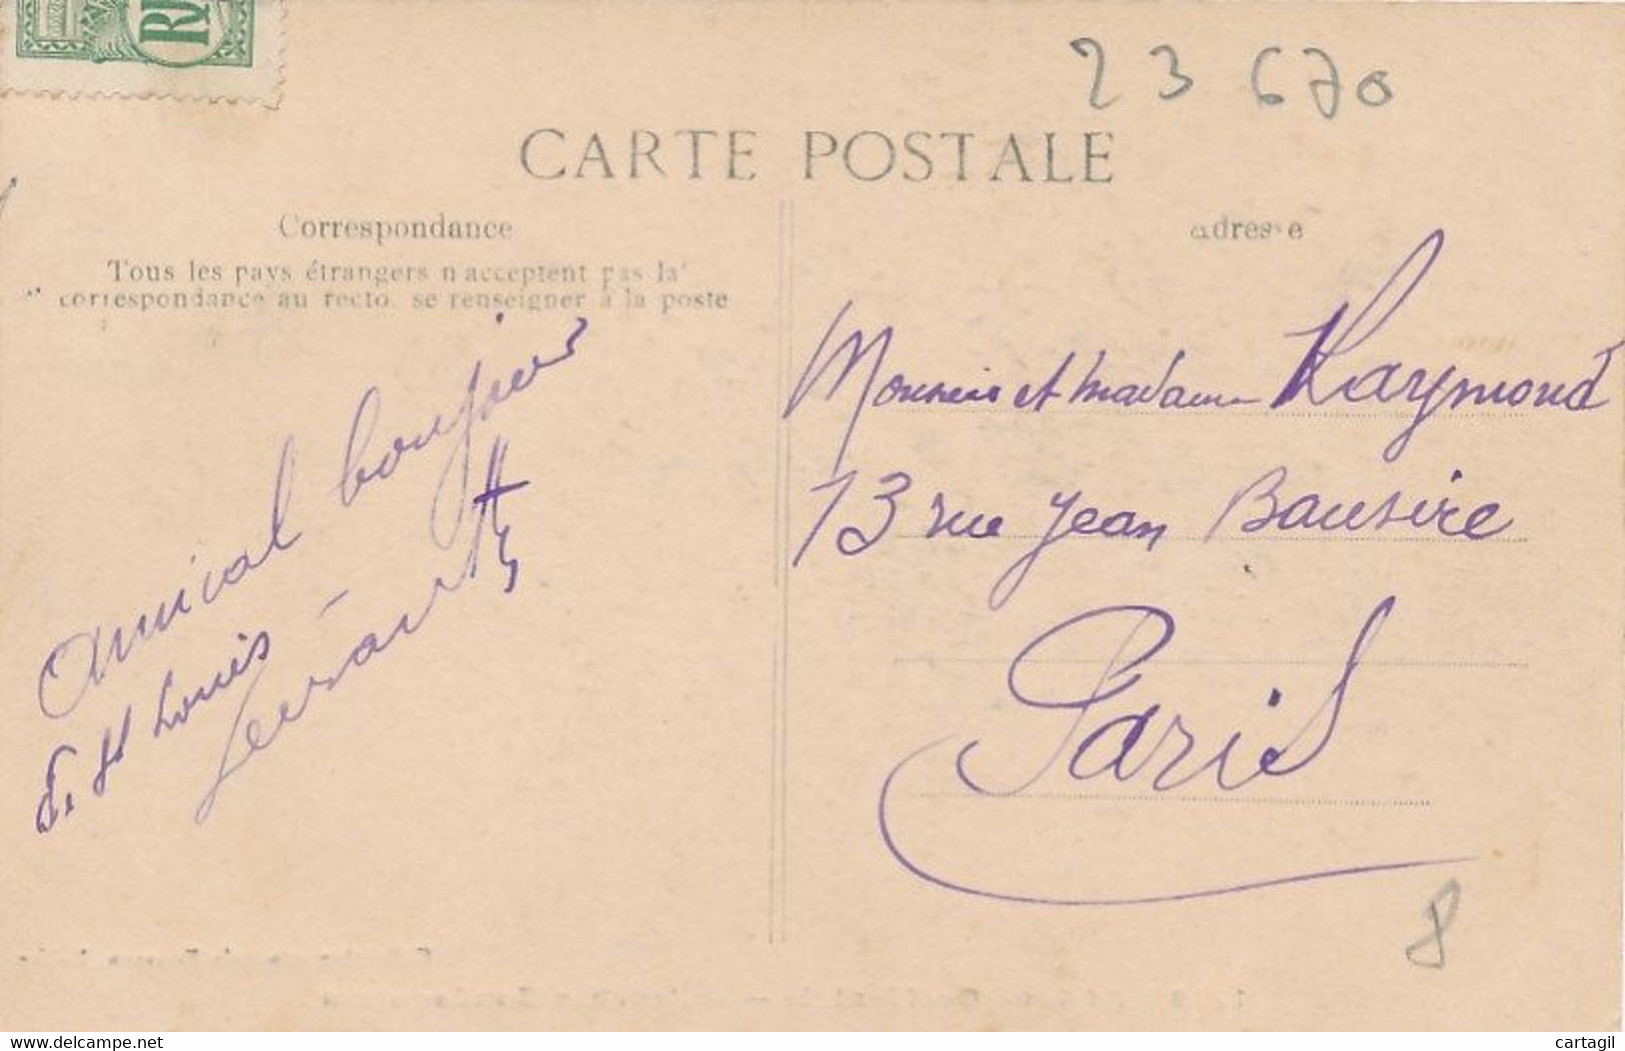 RF
23 670
CARTE POSTALE
Correspondance
Tous les pays étrangers n'acceptent pas la
correspondance au recto, se renseigner à la poste
Adresse
Amical bonjour
St Louis
Monsieur et Madame Raymond
13 rue Jean Bausire
Paris
8
www.delcampe.net
cartagil